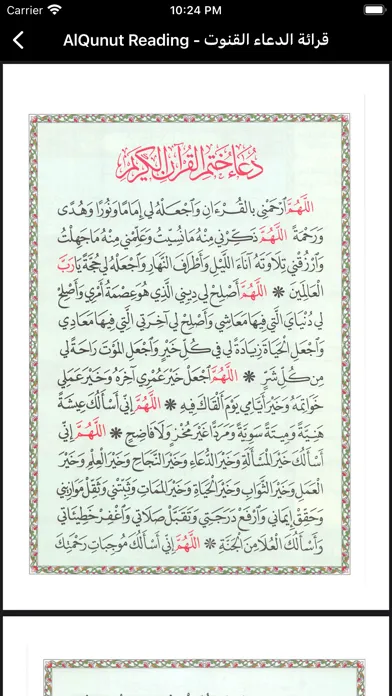 Carrier 10:24 PM
AlQunut Reading - قرائة الدعاء القنوت
دُعَاءُ خَتْمِ القُرْآنِ الكَرِيْمِ
اللَّهُمَّ ارْحَمْنِي بِالْقُرْءَانِ وَاجْعَلْهُ لِي إِمَامًا وَنُورًا وَهُدًى
وَرَحْمَةً اللَّهُمَّ ذَكِّرْنِي مِنْهُ مَا نُسِّيتُ وَعَلِّمْنِي مِنْهُ مَا جَهِلْتُ
وَارْزُقْنِي تِلَاوَتَهُ آنَاءَ اللَّيْلِ وَأَطْرَافَ النَّهَارِ وَاجْعَلْهُ لِي حُجَّةً يَا رَبَّ
الْعَالَمِينَ * اللَّهُمَّ أَصْلِحْ لِي دِينِي الَّذِي هُوَ عِصْمَةُ أَمْرِي وَأَصْلِحْ
لِي دُنْيَايَ الَّتِي فِيهَا مَعَاشِي وَأَصْلِحْ لِي آخِرَتِي الَّتِي فِيهَا مَعَادِي
وَاجْعَلِ الْحَيَاةَ زِيَادَةً لِي فِي كُلِّ خَيْرٍ وَاجْعَلِ الْمَوْتَ رَاحَةً لِي
مِنْ كُلِّ شَرٍّ * اللَّهُمَّ اجْعَلْ خَيْرَ عُمْرِي آخِرَهُ وَخَيْرَ عَمَلِي
خَوَاتِمَهُ وَخَيْرَ أَيَّامِي يَوْمَ أَلْقَاكَ فِيهِ * اللَّهُمَّ إِنِّي أَسْأَلُكَ عِيشَةً
هَنِيَّةً وَمِيتَةً سَوِيَّةً وَمَرَدًّا غَيْرَ مُخْزٍ وَلَا فَاضِحٍ * اللَّهُمَّ إِنِّي
أَسْأَلُكَ خَيْرَ الْمَسْأَلَةِ وَخَيْرَ الدُّعَاءِ وَخَيْرَ النَّجَاحِ وَخَيْرَ الْعِلْمِ وَخَيْرَ
الْعَمَلِ وَخَيْرَ الثَّوَابِ وَخَيْرَ الْحَيَاةِ وَخَيْرَ الْمَمَاتِ وَثَبِّتْنِي وَثَقِّلْ مَوَازِينِي
وَحَقِّقْ إِيمَانِي وَارْفَعْ دَرَجَتِي وَتَقَبَّلْ صَلَاتِي وَاغْفِرْ خَطِيئَاتِي
وَأَسْأَلُكَ الْعُلَا مِنَ الْجَنَّةِ * اللَّهُمَّ إِنِّي أَسْأَلُكَ مُوجِبَاتِ رَحْمَتِكَ